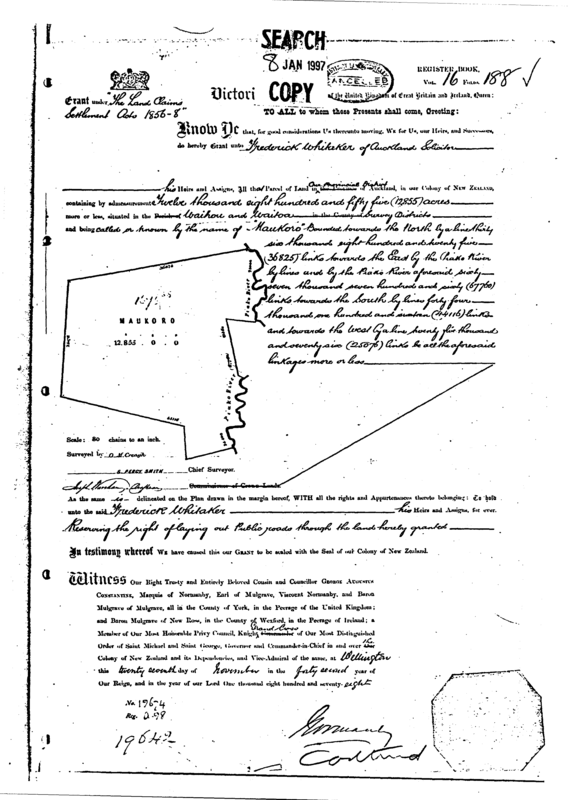 SEARCH
8 JAN 1997
COPY
CANCELLED
REGISTER BOOK,
Vol. 16 Folio 188
Grant under "The Land Claims
Settlement Acts 1856-8"
Victori
of the United Kingdom of Great Britain and Ireland, Queen:
TO ALL to whom these Presents shall come, Greeting:
Know Ye that, for good considerations Us thereunto moving, We for Us, our Heirs, and Successors,
do hereby Grant unto Frederick Whitaker of Auckland Solicitor
his Heirs and Assigns, All that Parcel of Land in Our Provincial District of Auckland, in our Colony of NEW ZEALAND,
containing by admeasurement Twelve thousand eight hundred and fifty five (12855) acres
more or less, situated in the Waihou and Waitoa Survey Districts
and being called or known by the name of "Maukoro" Bounded towards the North by a line thirty
six thousand eight hundred and twenty five
(36825) links towards the East by the Piako River
by lines and by the Piako River aforesaid sixty
seven thousand seven hundred and sixty (67760)
links towards the South by lines forty four
thousand one hundred and sixteen (44116) links
and towards the West by a line twenty five thousand
and seventy six (25076) links be all the aforesaid
linkages more or less
MAUKORO
A. R. P.
12,855 0 0
Piako River
Piako River
Scale: 80 chains to an inch.
Surveyed by
S. PERCY SMITH Chief Surveyor.
Commissioner of Crown Lands
As the same is delineated on the Plan drawn in the margin hereof, WITH all the rights and Appurtenances thereto belonging: To hold
unto the said Frederick Whitaker his Heirs and Assigns, for ever.
Reserving the right of laying out Public roads through the land hereby granted
In testimony whereof We have caused this our GRANT to be sealed with the Seal of our Colony of New Zealand.
Witness Our Right Trusty and Entirely Beloved Cousin and Councillor GEORGE AUGUSTUS
CONSTANTINE, Marquis of Normanby, Earl of Mulgrave, Viscount Normanby, and Baron
Mulgrave of Mulgrave, all in the County of York, in the Peerage of the United Kingdom;
and Baron Mulgrave of New Ross, in the County of Wexford, in the Peerage of Ireland; a
Member of Our Most Honorable Privy Council, Knight Grand Cross of Our Most Distinguished
Order of Saint Michael and Saint George, Governor and Commander-in-Chief in and over the
Colony of New Zealand and its Dependencies, and Vice-Admiral of the same, at Wellington
this twenty seventh day of November in the forty second year of
Our Reign, and in the year of our Lord One thousand eight hundred and seventy-eight
No. 1964
Reg.
Normanby